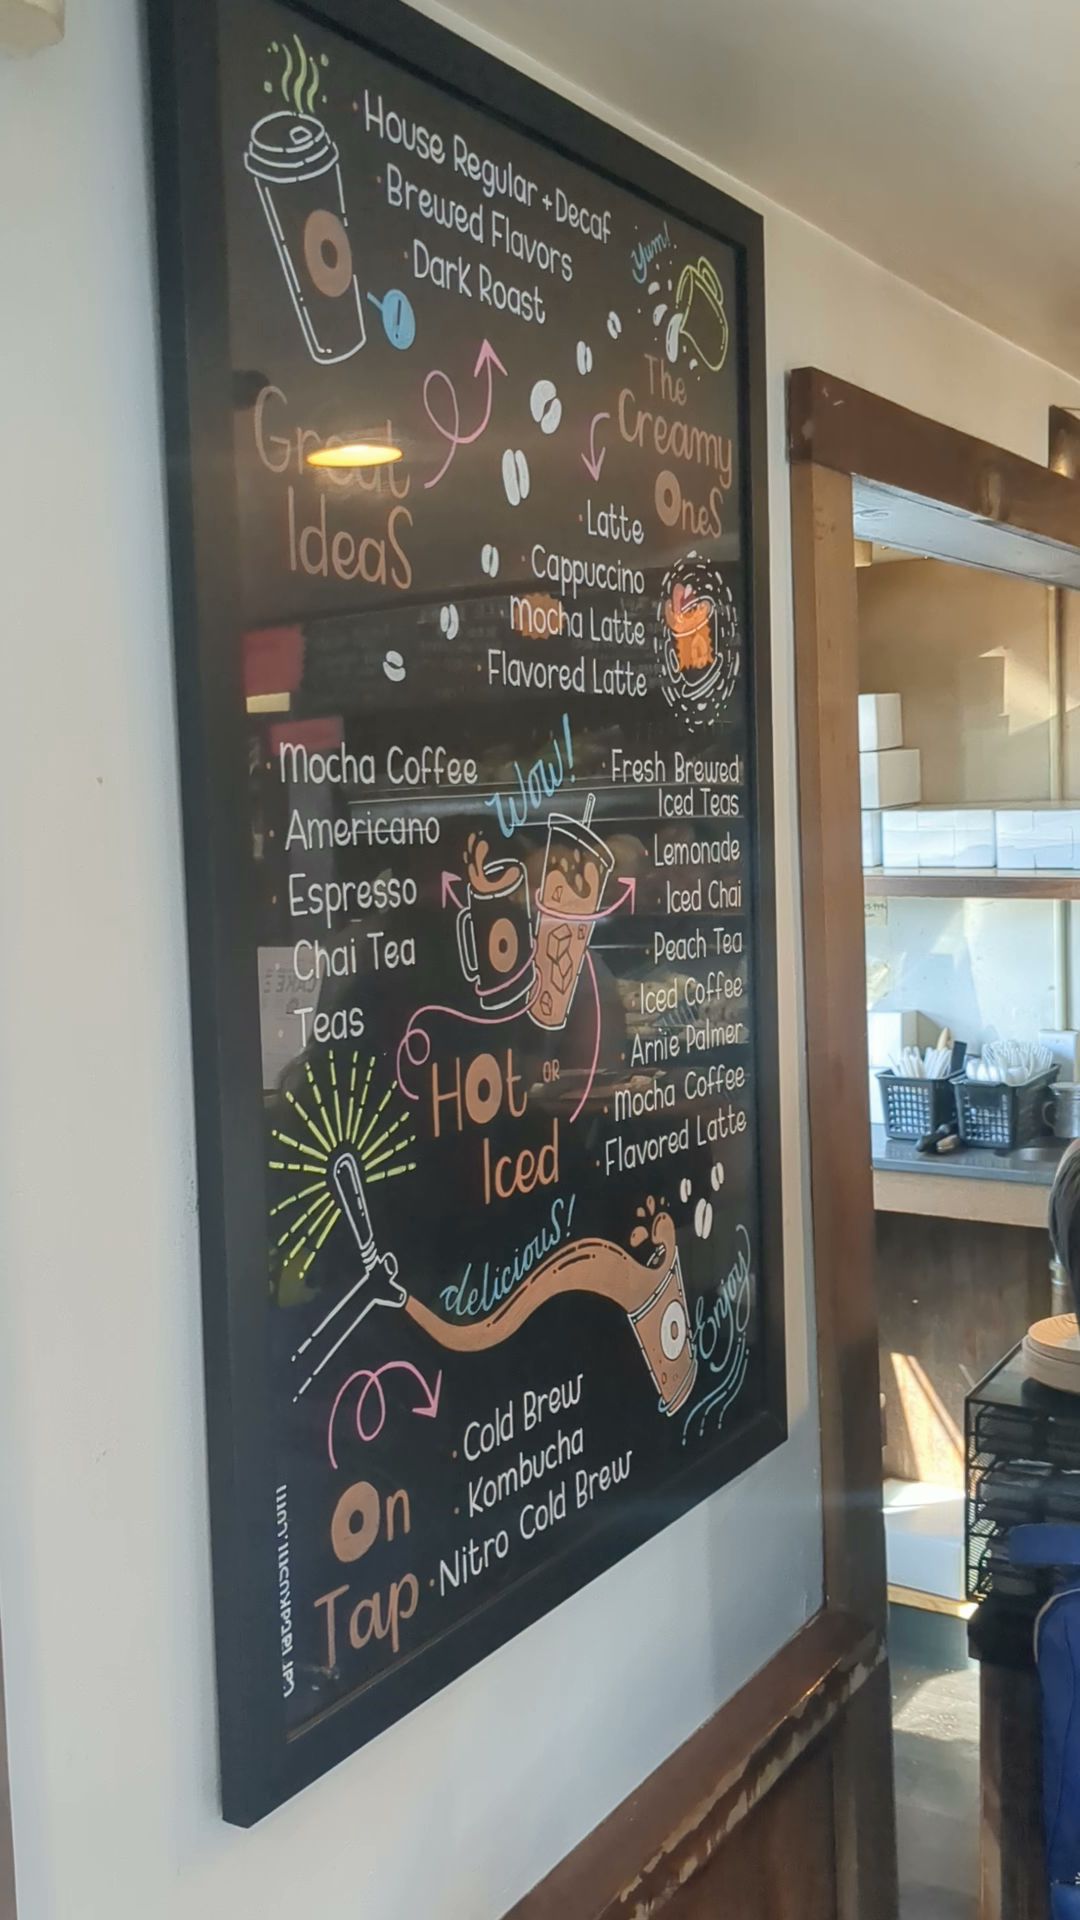 · House Regular + Decaf
· Brewed Flavors
· Dark Roast
Yum!
Great
Ideas
The
Creamy
Ones
· Latte
· Cappuccino
· Mocha Latte
· Flavored Latte
· Mocha Coffee
· Americano
· Espresso
· Chai Tea
· Teas
Wow!
· Fresh Brewed
Iced Teas
· Lemonade
· Iced Chai
· Peach Tea
· Iced Coffee
· Arnie Palmer
· Mocha Coffee
· Flavored Latte
Hot OR
Iced
delicious!
Enjoy
On
Tap
· Cold Brew
· Kombucha
· Nitro Cold Brew